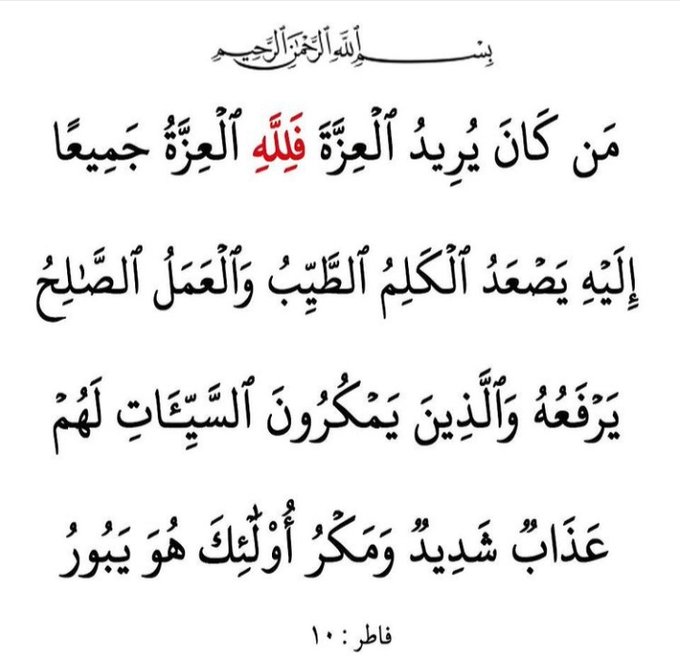 بِسْمِ ٱللَّهِ ٱلرَّحْمَٰنِ ٱلرَّحِيمِ
مَن كَانَ يُرِيدُ ٱلْعِزَّةَ فَلِلَّهِ ٱلْعِزَّةُ جَمِيعًا
إِلَيْهِ يَصْعَدُ ٱلْكَلِمُ ٱلطَّيِّبُ وَٱلْعَمَلُ ٱلصَّٰلِحُ
يَرْفَعُهُ وَٱلَّذِينَ يَمْكُرُونَ ٱلسَّيِّـَٔاتِ لَهُمْ
عَذَابٌ شَدِيدٌ وَمَكْرُ أُو۟لَٰٓئِكَ هُوَ يَبُورُ
فاطر : ١٠